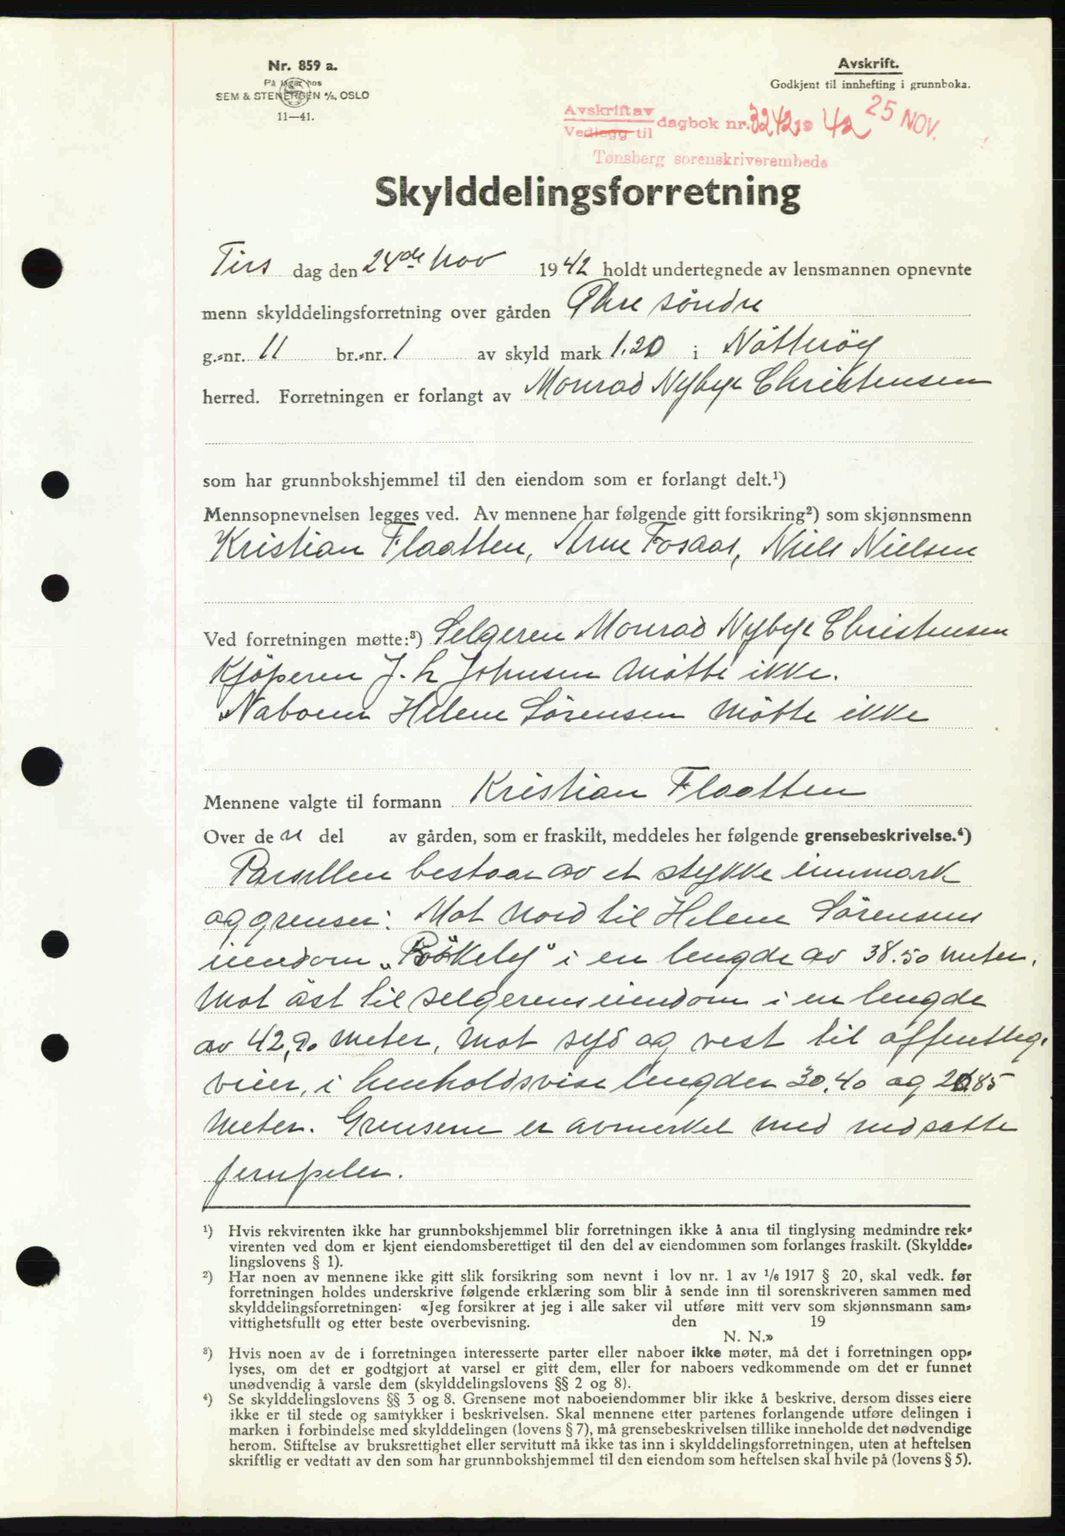 Nr. 859 a.
På lager hos
SEM & STENERSEN A/S, OSLO
11—41.
Avskrift.
Godkjent til innhefting i grunnboka.
Avskrift av
Vedlegg til dagbok nr. 3242 19 42 25 NOV.
Tønsberg sorenskriverembede
Skylddelingsforretning
Tirs dag den 24de Nov 1942 holdt undertegnede av lensmannen opnevnte
menn skylddelingsforretning over gården søndre
g.-nr. 11 br.-nr. 1 av skyld mark 1.20 i Nötteröy
herred. Forretningen er forlangt av Monrad Nybye Christensen
som har grunnbokshjemmel til den eiendom som er forlangt delt.¹)
Mennsopnevnelsen legges ved. Av mennene har følgende gitt forsikring²) som skjønnsmenn
Kristian Flaatten, Arne Fosaas, Niels Nielsen
Ved forretningen møtte:³) Selgeren Monrad Nybye Christensen
Kjöperen J. L Johnsen mötte ikke.
Naboen Helene Sörensen mötte ikke
Mennene valgte til formann Kristian Flaatten
Over den del av gården, som er fraskilt, meddeles her følgende grensebeskrivelse.⁴)
Parsellen bestaar av et stykke innmark
og grenser: Mot Nord til Helene Sörensens
eiendom „Bökely" i en lengde av 38.50 meter.
Mot öst til selgerens eiendom i en lengde
av 42,90 meter, mot syd og vest til offentlig.
veier, i henholdsvise lengder 30,40 og 85
meter. Grensene er avmerket med nedsatte
jernpeler.
¹) Hvis rekvirenten ikke har grunnbokshjemmel blir forretningen ikke å anta til tinglysing medmindre rek-
virenten ved dom er kjent eiendomsberettiget til den del av eiendommen som forlanges fraskilt. (Skyldde-
lingslovens § 1).
²) Har noen av mennene ikke gitt slik forsikring som nevnt i lov nr. 1 av 1/6 1917 § 20, skal vedk. før
forretningen holdes underskrive følgende erklæring som blir å sende inn til sorenskriveren sammen med
skylddelingsforretningen: «Jeg forsikrer at jeg i alle saker vil utføre mitt verv som skjønnsmann sam-
vittighetsfullt og etter beste overbevisning. den 19
N. N.»
³) Hvis noen av de i forretningen interesserte parter eller naboer ikke møter, må det i forretningen opp-
lyses, om det er godtgjort at varsel er gitt dem, eller for naboers vedkommende om det er funnet
unødvendig å varsle dem (skylddelingslovens §§ 2 og 8).
⁴) Se skylddelingslovens §§ 3 og 8. Grensene mot naboeiendommer blir ikke å beskrive, dersom disses eiere
ikke er til stede og samtykker i beskrivelsen. Skal mennene etter partenes forlangende utføre delingen i
marken i forbindelse med skylddelingen (lovens § 7), må grensebeskrivelsen tillike inneholde det nødvendige
herom. Stiftelse av bruksrettighet eller servitutt må ikke tas inn i skylddelingsforretningen, uten at heftelsen
skriftlig er vedtatt av den som har grunnbokshjemmel til den eiendom som heftelsen skal hvile på (lovens § 5).